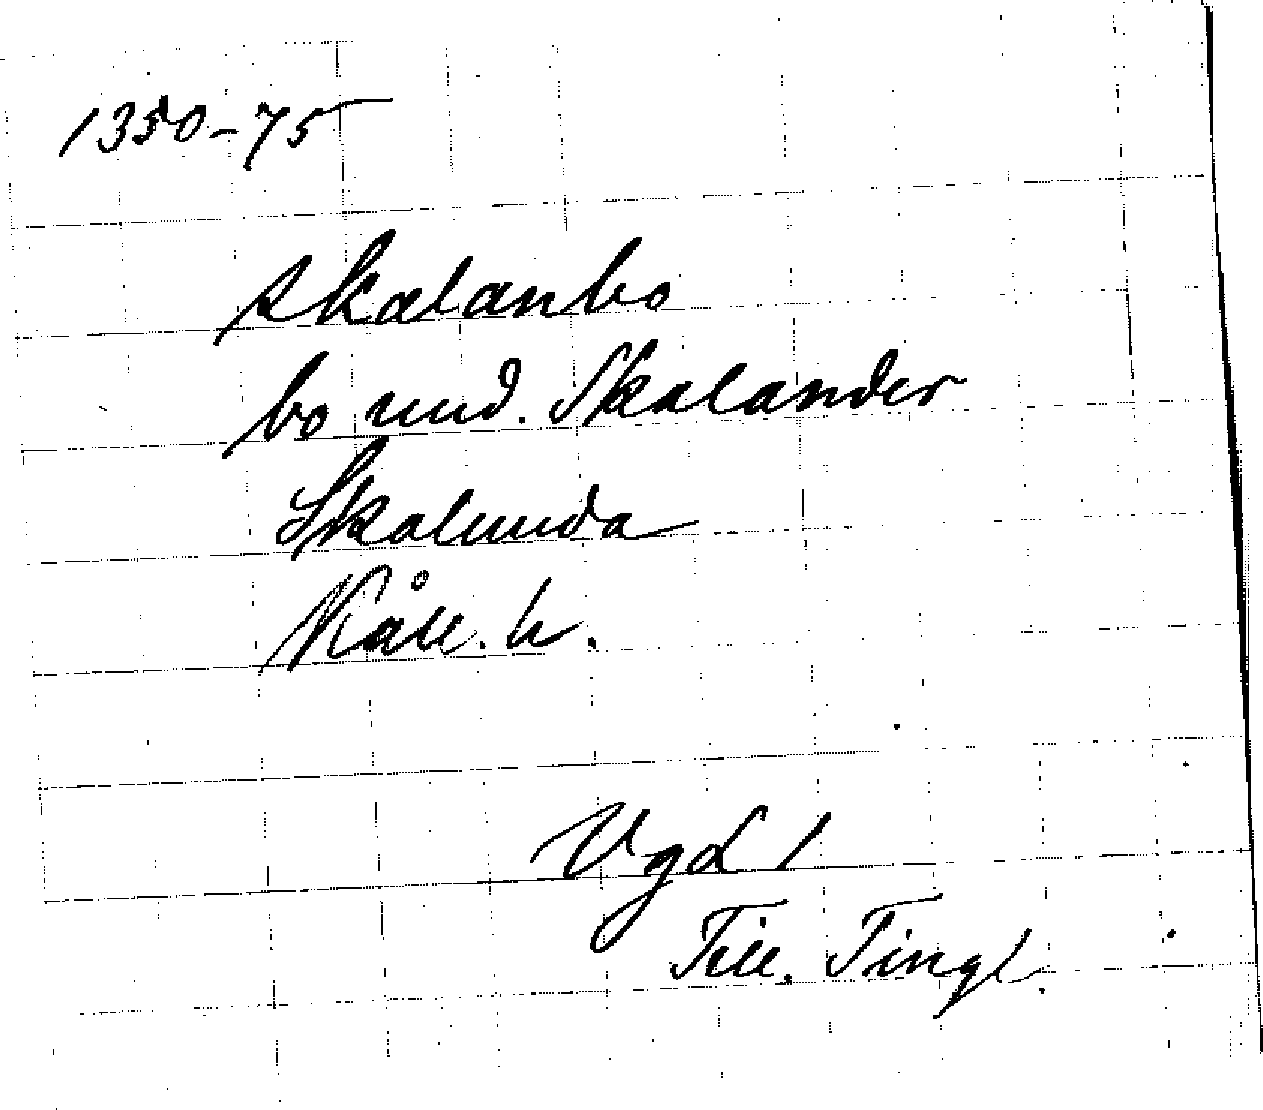 1350-75
skalanbo
bo und. Skalander
Skalunda
Kåll. h.
VgL 1
Till. Tingl.